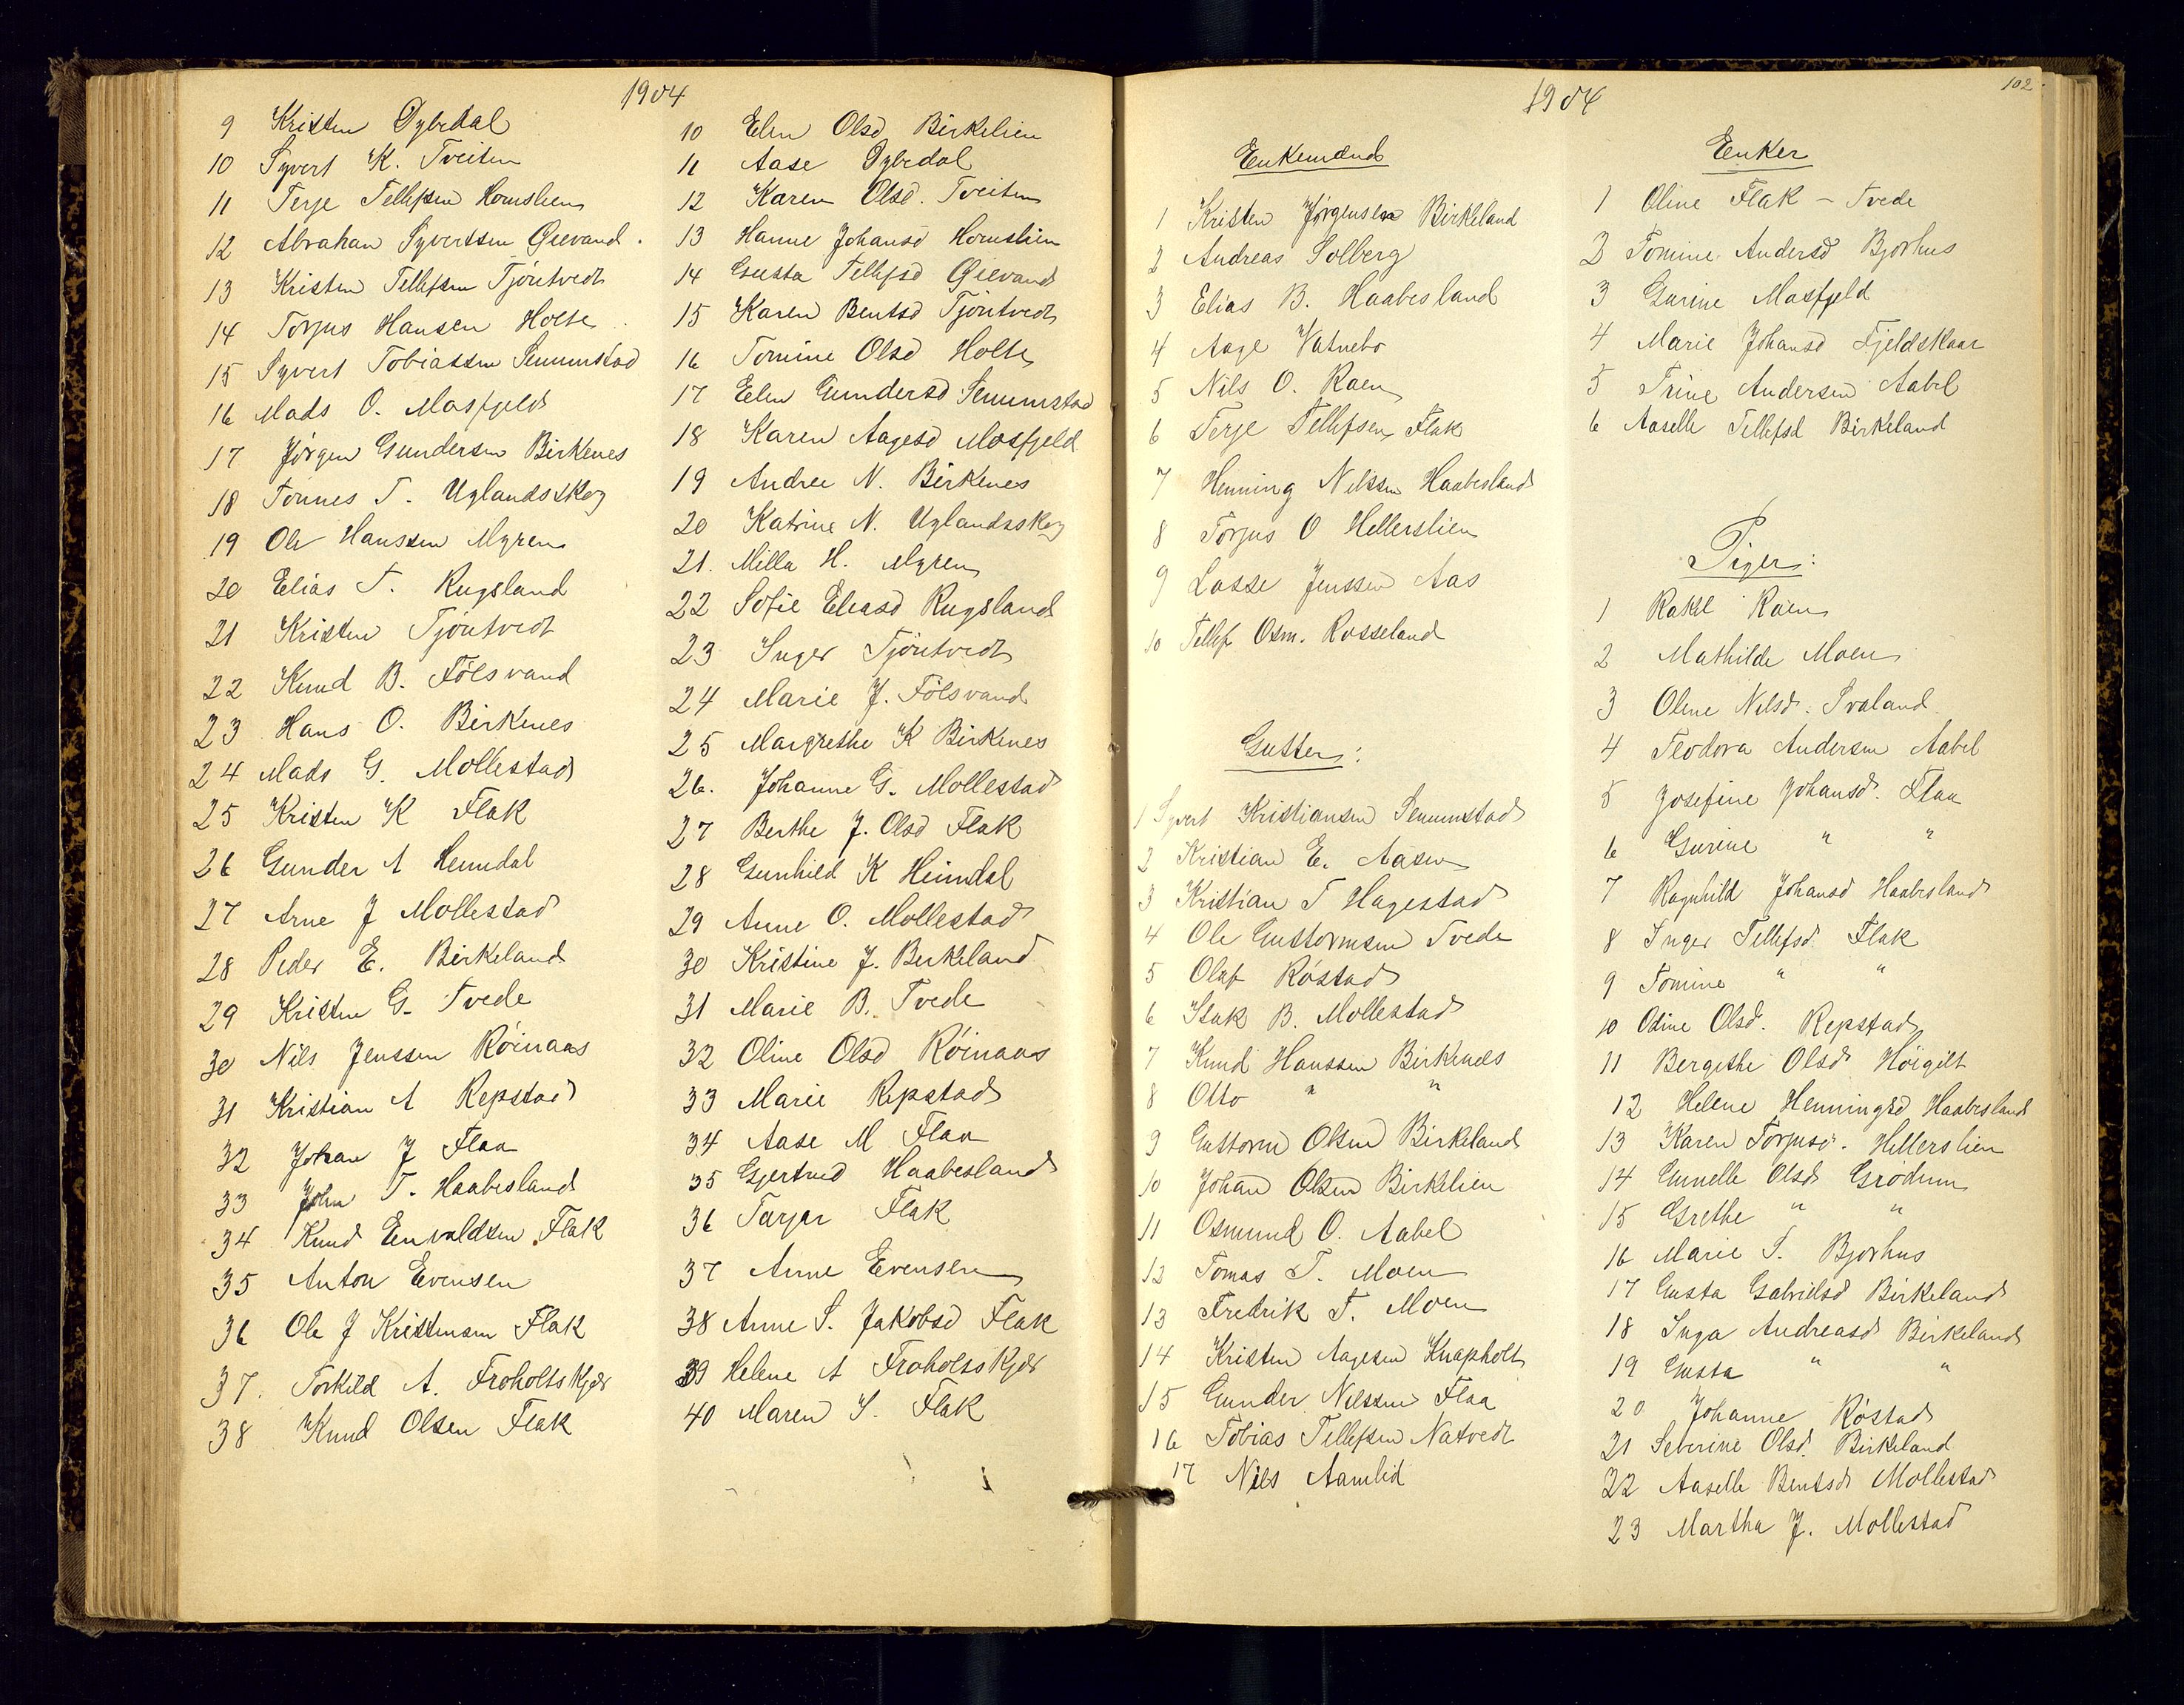 1904
9 Kristen Dybedal
10 Syvert K. Tveiten
11 Terje Tellefsen Homslien
12 Abrahan Syvertsen Øievand.
13 Kristen Tellefsen Tjöntvedt
14 Torjus Hansen Holte
15 Syvert Tobiassen Senumstad
16 Mads O. Mosfjeld
17 Jörgen Gundersen Birkenes
18 Tönnes T. Uglandsskog
19 Ole Hanssen Myren
20 Elias T. Rugsland
21 Kristen Tjöntvedt
22 Knud B. Fölsvand
23 Hans O. Birkenes
24 Mads G. Mollestad
25 Kristen K Flak
26 Gunder A Heimdal
27 Arne J Mollestad
28 Peder E. Birkeland
29 Kristen G. Tvede
30 Nils Jenssen Röinaas
31 Kristian A Repstad
32 Johan J Flaa
33 John T. Haabesland
34 Knud Envaldsen Flak
35 Anton Evensen
36 Ole J Kristensen Flak
37. Torkild A. Froholtskjær
38 Knud Olsen Flak
10 Elen Olsd Birkelien
11 Aase Dybedal
12 Karen Olsd. Tveiten
13 Hanne Johansd Homslien
14 Gusta Tellefsd Øievand
15 Karen Bentsd Tjöntvedt
16 Tomine Olsd Holte
17 Elen Gundersd Senumstad
18 Karen Aagesd Mosfjeld
19 Andree N. Birkenes
20 Katrine N. Uglandsskog
21. Milla H. Myren
22 Sofie Eliasd Rugsland
23 Inger Tjöntvedt
24 Marie J. Fölsvand
25 Margrethe K Birkenes
26. Johanne G. Mollestad
27 Berthe J. Olsd Flak
28 Gunhild K Heimdal
29 Anne O. Mollestad
30 Kristine J. Birkeland
31 Marie B. Tvede
32 Oline Olsd Röinaas
33 Marie Repstad
34 Aase M Flaa
35 Gjertrud Haabesland
36 Tarjer Flak
37 Anne Evensen
38 Anne S. Jakobsd Flak
39 Helene A Froholtskjær
40 Maren S. Flak
1904
102.
Enkemænd
1 Kristen Jörgensen Birkeland
2 Andreas Solberg
3 Elias B. Haabesland
4 Aage Vatnebo
5 Nils O. Raen
6 Terje Tellefsen Flak
7 Henning Nilssen Haabesland
8 Torjus O Hellerslien
9 Lasse Jenssen Aas
10 Tellef Osm. Rosseland
Gutter:
1 Syvert Kristiansen Senumstad
2 Kristian E. Aasen
3 Kristian T Hagestad
4 Ole Guttormsen Tvede
5 Olaf Röstad
6 Isak B. Mollestad
7 Knud Hanssen Birkenes
8 Otto " "
9 Guttorm Olsen Birkeland
10 Johan Olsen Birkelien
11 Osmund O. Aabel
12 Tomas T. Moen
13 Fredrik T. Moen
14 Kristen Aagesen Knapholt
15 Gunder Nilssen Flaa
16 Tobias Tellefsen Natvedt
17 Nils Aamlid
Enker
1 Oline Flak - Tvede
2 Tomine Andersd Bjorhus
3 Gurine Mosfjeld
4 Marie Johansd Fjeldskaar
5 Trine Andersen Aabel
6 Aaselle Tellefsd Birkeland
Piger:
1 Rakel Raen
2 Mathilde Moen
3 Oline Nilsd. Svaland
4 Teodora Andersen Aabel
5 Josefine Johansd. Flaa
6 Gurine " "
7 Ragnhild Johansd Haabesland
8 Inger Tellefsd. Flak
9 Tomine " "
10 Odine Olsd. Repstad
11 Bergithe Olsd. Höigilt
12 Helene Henningsd Haabesland
13 Karen Torjusd. Hellerslien
14 Gunelle Olsd Grödum
15 Grethe " "
16 Marie T. Bjorhus
17 Gusta Gabrielsd Birkeland
18 Inga Andreasd Birkeland
19 Gusta " "
20 Johanne Röstad
21 Severine Olsd. Birkeland
22 Aaselle Bentsd. Mollestad
23 Martha J. Mollestad